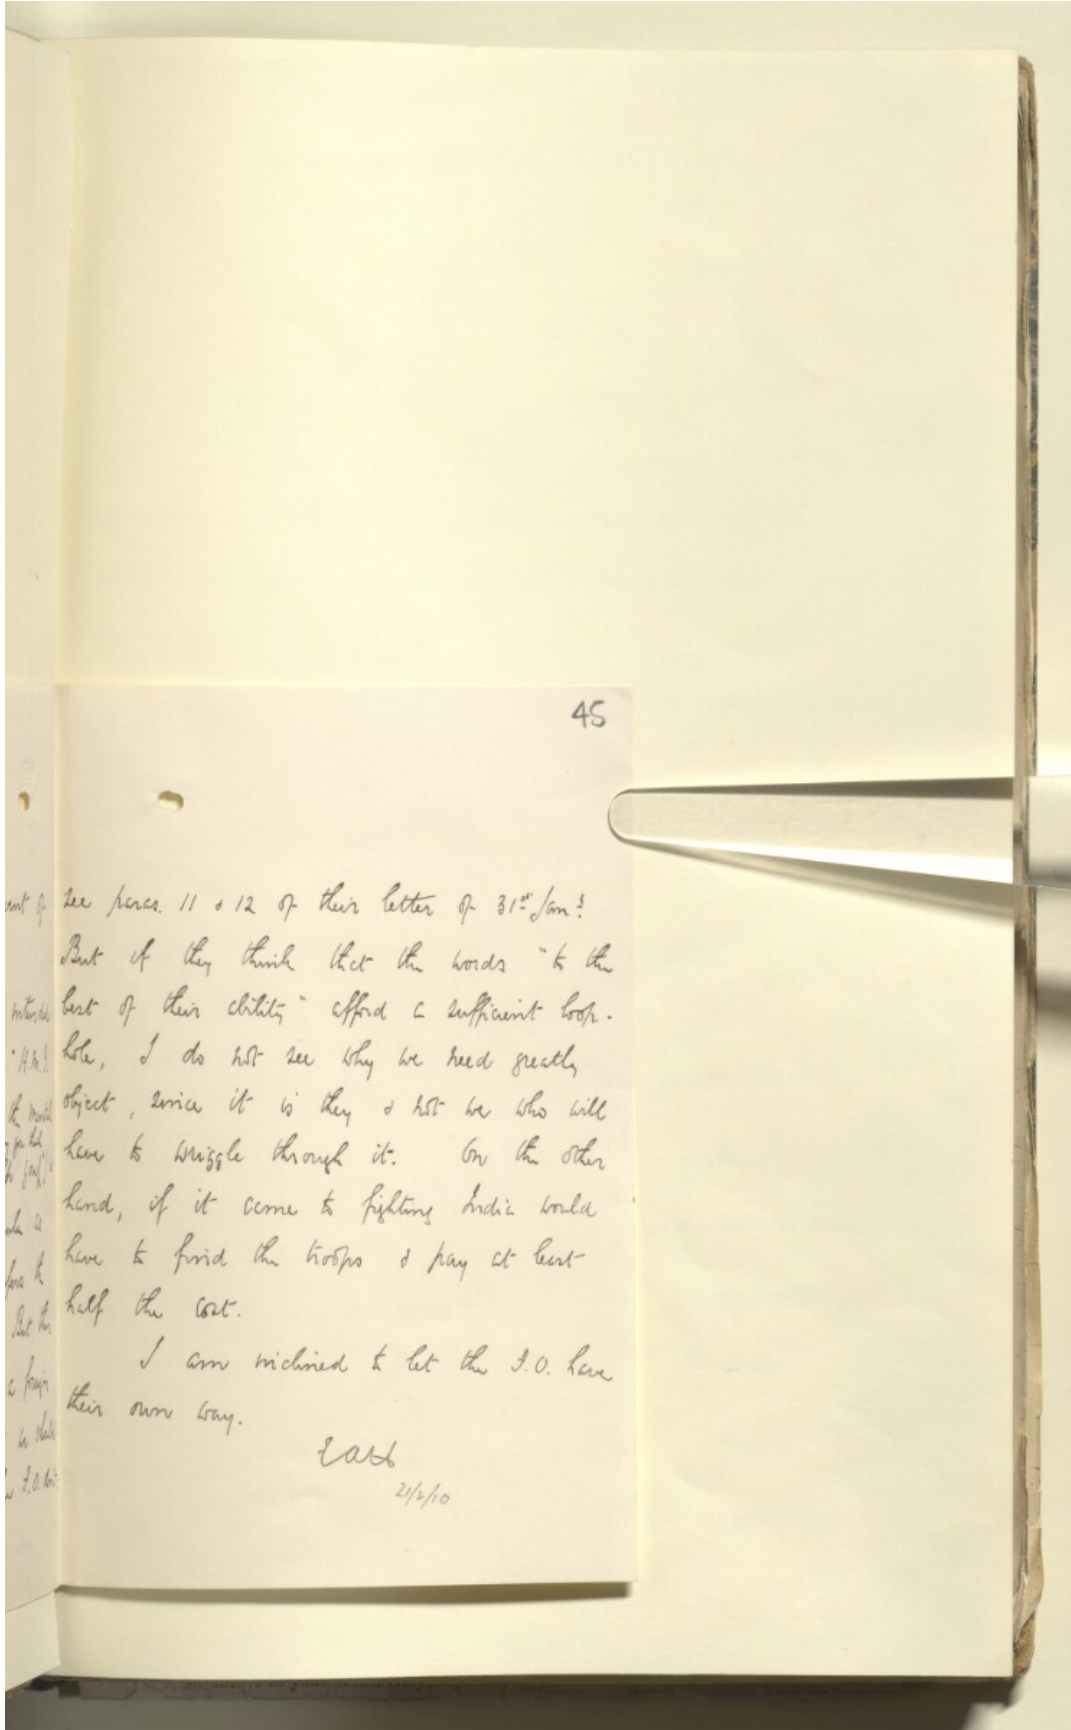 45
see paras. 11 & 12 of their letter of 31st Jany.
But if they think that the words "to the
best of their ability" afford a sufficient loop-
hole, I do not see why we need greatly
object, since it is they & not we who will
have to wriggle through it. On the other
hand, if it came to fighting India would
have to find the troops & pay at least
half the cost.
I am inclined to let the F.O. have
their own way.
21/2/10
of
intended
"H.M.G.
the
a
the
But the
a
we
F.O.